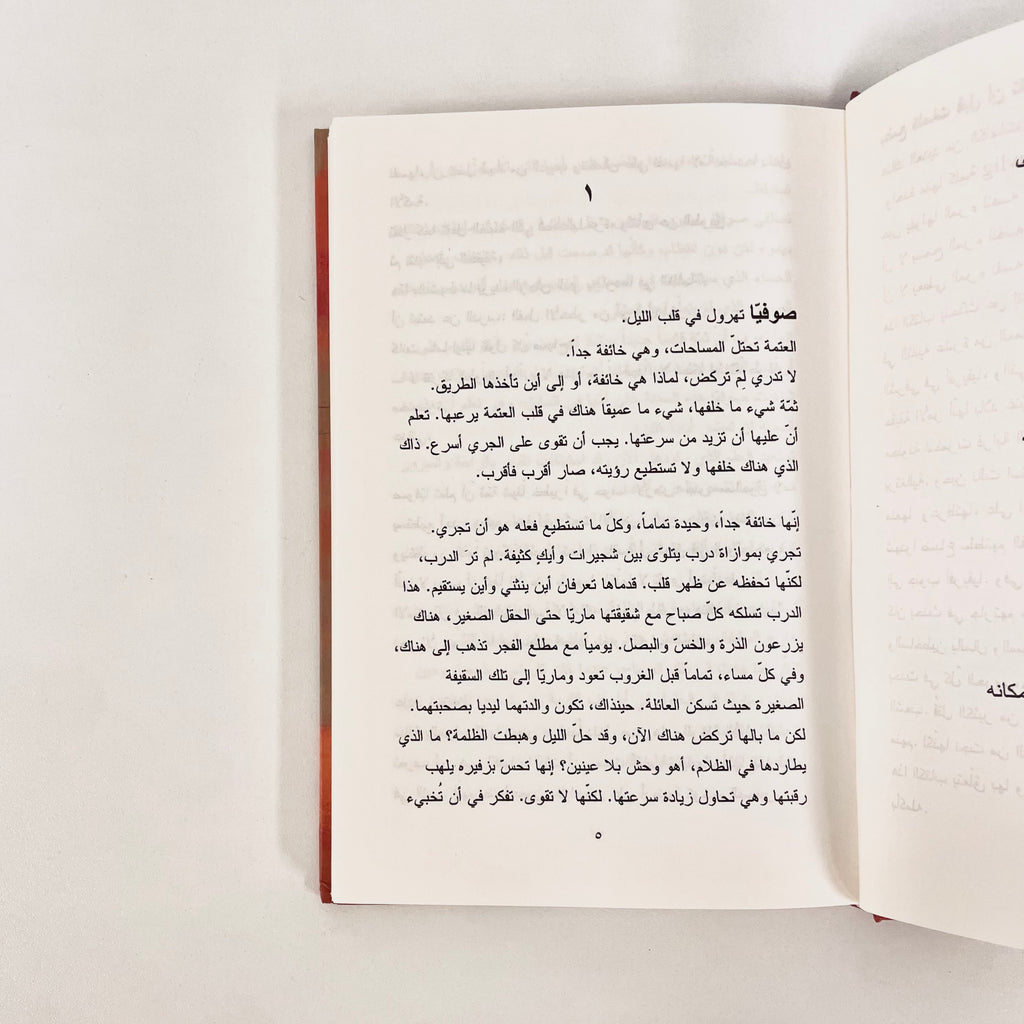 ١
صوفيّا تهرول في قلب الليل.
العتمة تحتلّ المساحات، وهي خائفة جداً.
لا تدري لِمَ تركض، لماذا هي خائفة، أو إلى أين تأخذها الطريق.
ثمّة شيء ما خلفها، شيء ما عميقاً هناك في قلب العتمة يرعبها. تعلم
أنّ عليها أن تزيد من سرعتها. يجب أن تقوى على الجري أسرع. ذاك
الذي هناك خلفها ولا تستطيع رؤيته، صار أقرب فأقرب.
إنّها خائفة جداً، وحيدة تماماً، وكلّ ما تستطيع فعله هو أن تجري.
تجري بموازاة درب يتلوّى بين شجيرات وأيكٍ كثيفة. لم ترَ الدرب،
لكنّها تحفظه عن ظهر قلب. قدماها تعرفان أين ينثني وأين يستقيم. هذا
الدرب تسلكه كلّ صباح مع شقيقتها ماريّا حتى الحقل الصغير، هناك
يزرعون الذرة والخسّ والبصل. يومياً مع مطلع الفجر تذهب إلى هناك،
وفي كلّ مساء، تماماً قبل الغروب تعود وماريّا إلى تلك السقيفة
الصغيرة حيث تسكن العائلة. حينذاك، تكون والدتهما ليديا بصحبتهما.
لكن ما بالها تركض هناك الآن، وقد حلّ الليل وهبطت الظلمة؟ ما الذي
يطاردها في الظلام، أهو وحش بلا عينين؟ إنها تحسّ بزفيره يلهب
رقبتها وهي تحاول زيادة سرعتها. لكنّها لا تقوى. تفكر في أن تُخبيء
٥
مكانه